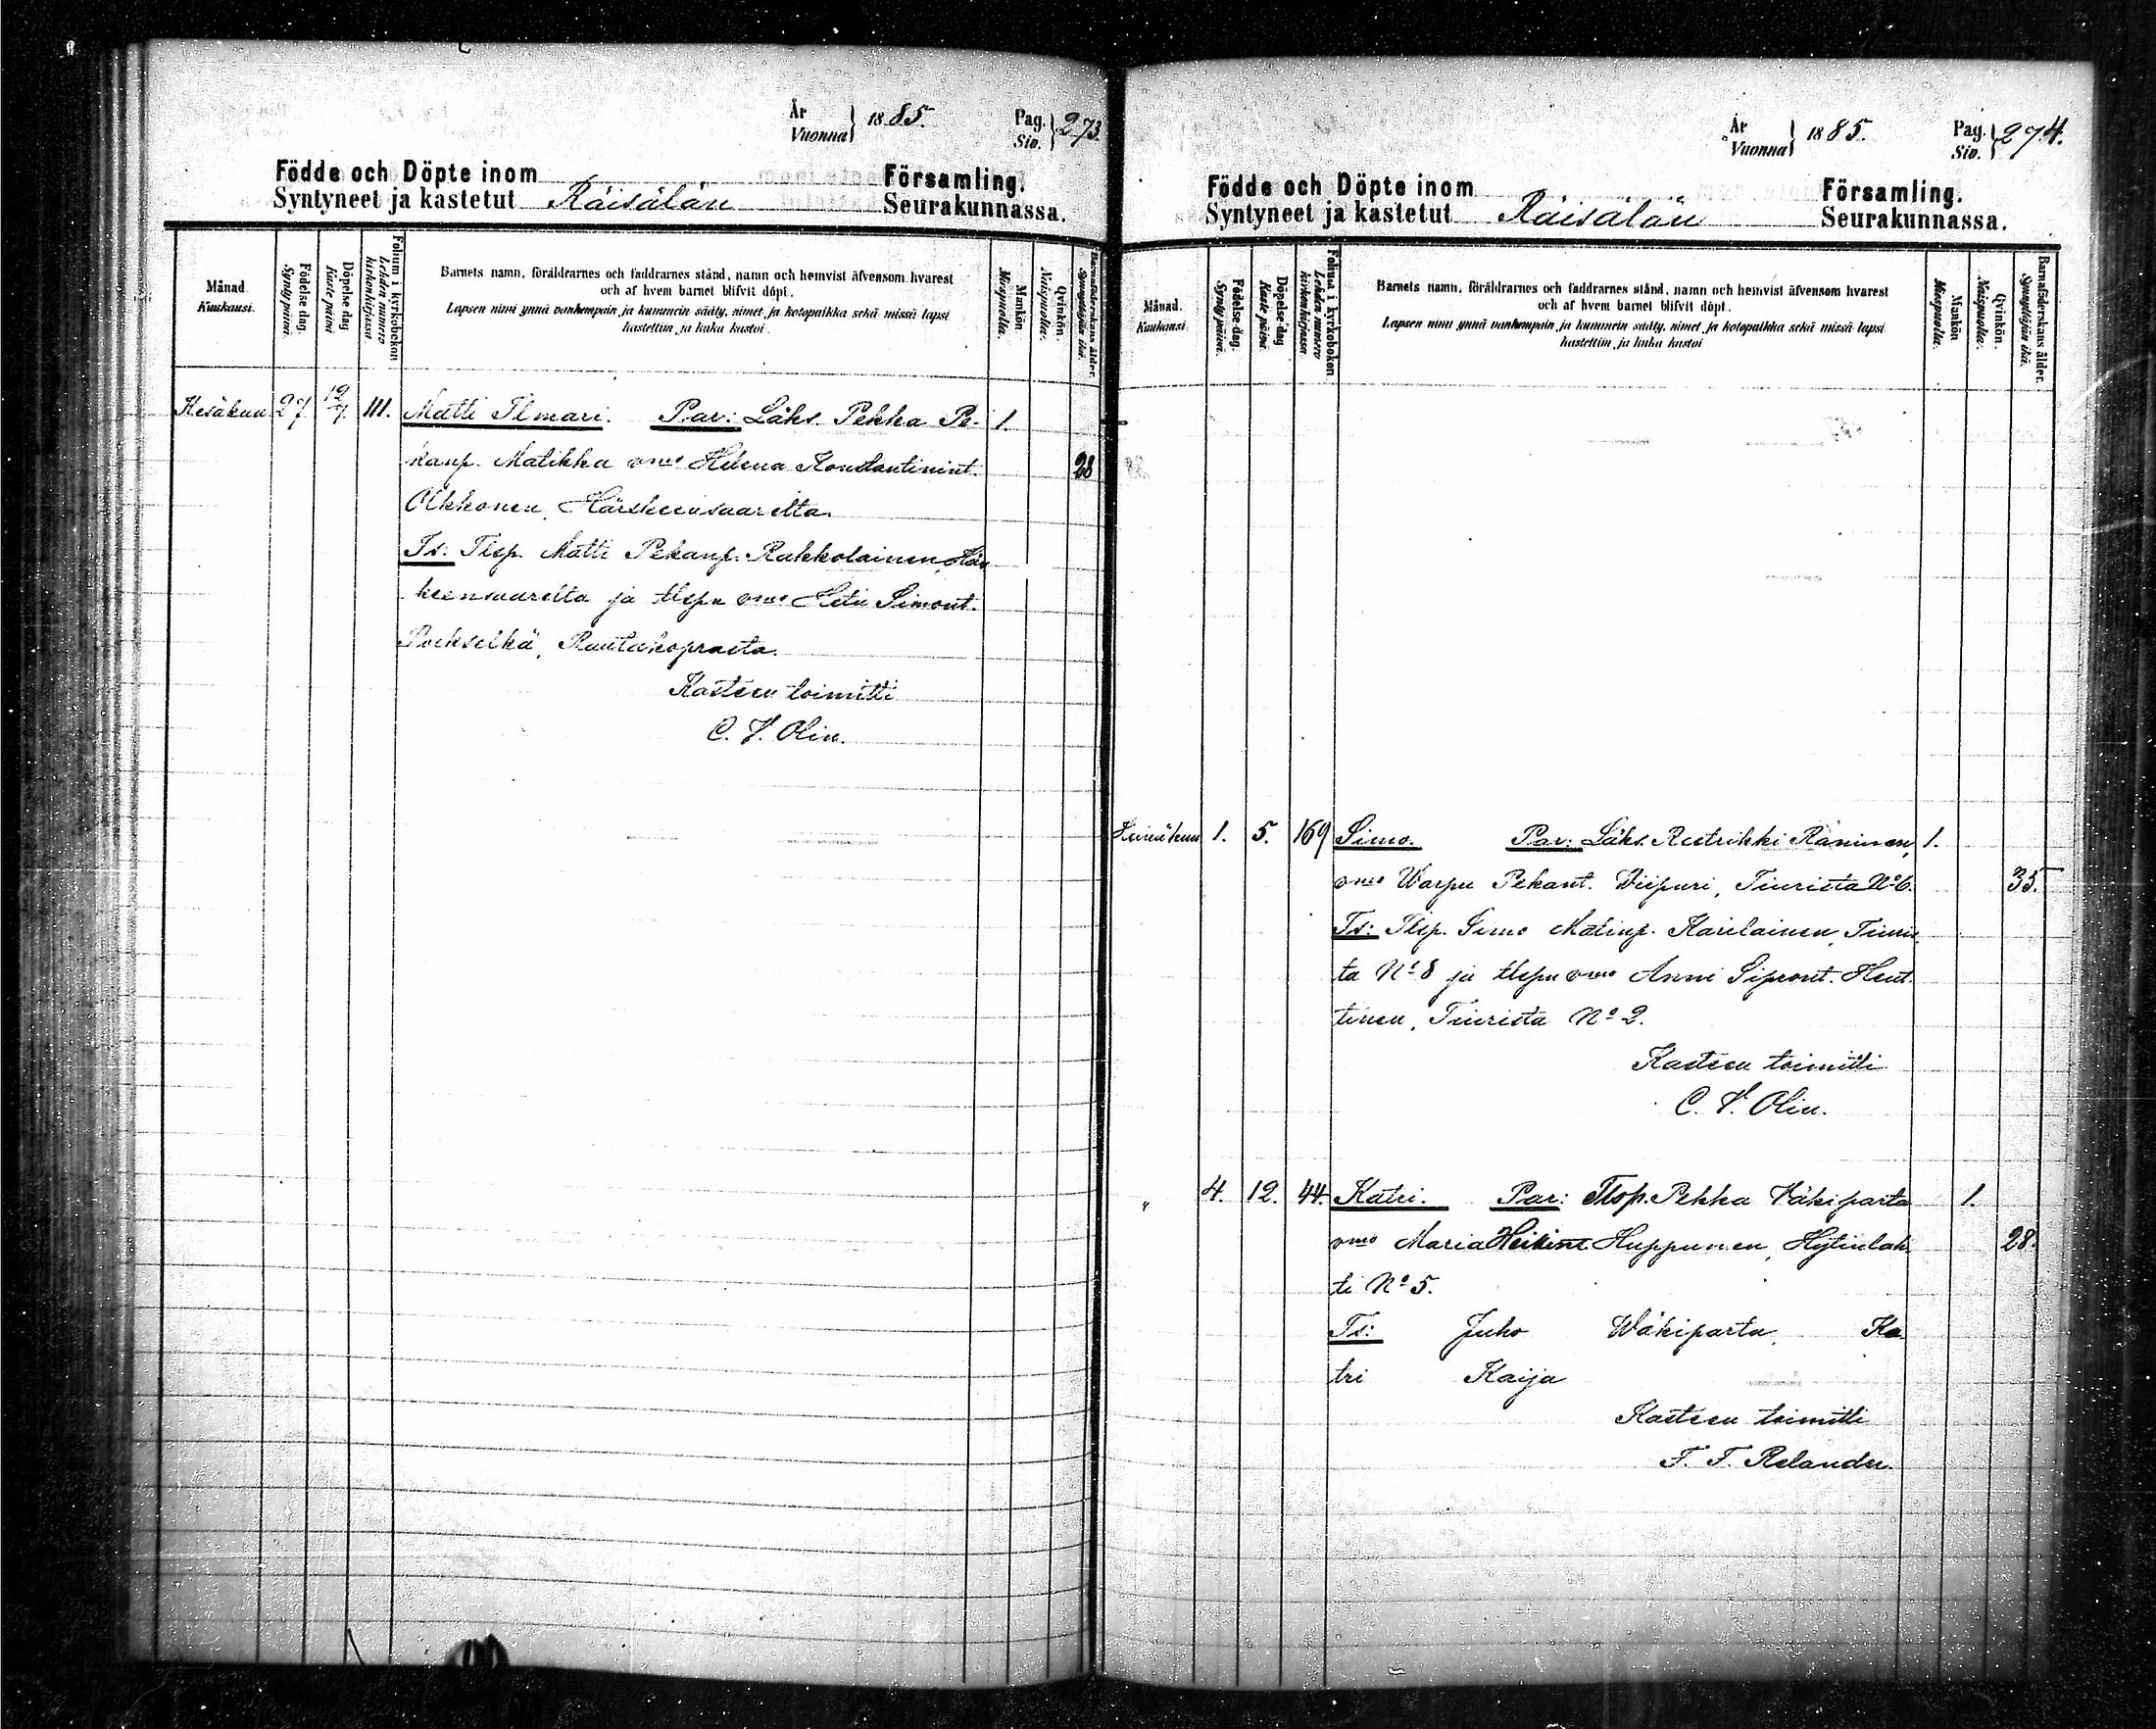 År
Vuonna } 1885.
Pag.
Siv. } 273.
Födde och Döpte inom Församling.
Syntyneet ja kastetut Räisälän Seurakunnassa.
Månad.
Kuukausi.
Födelse dag.
Synty päivä.
Döpelse dag
Kaste päivä
Folium i kyrkobokon
Lehden numero
kirkonkirjassa
Barnets namn, föräldrarnes och faddrarnes stånd, namn och hemvist äfvensom hvarest
och af hvem barnet blifvit döpt.
Lapsen nimi ynnä vanhempain ja kummein sääty, nimet, ja kotopaikka sekä missä lapsi
kastettiin ja kuka kastoi.
Mankön
Miespuolia.
Qvinkön.
Naispuolia.
Barnaföderskans ålder.
Synnyttäjän ikä.
Kesäkuu 27 12/7. 111. Matti Ilmari. Par: Läks. Pekka Pe- 1.
kanp. Matikka vmo Helena Konstantinint. 28
Olkkonen, Härskeensaarelta.
Ts: Tlsp. Matti Pekanp. Rukkolainen, Härs
keensaarelta ja tlspn vmo Hetu Simont.
Pockselkä, Rautakoprasta.
Kasteen toimitti
C. V. Olin.
År
Vuonna } 1885.
Pag.
Siv. } 274.
Födde och Döpte inom Församling.
Syntyneet ja kastetut Räisälän Seurakunnassa.
Månad.
Kuukausi.
Födelse dag.
Synty päivä.
Döpelse dag
Kaste päivä.
Folium i kyrkobokon
Lehden numero
kirkonkirjassa.
Barnets namn, föräldrarnes och faddrarnes stånd, namn och hemvist äfvensom hvarest
och af hvem barnet blifvit döpt.
Lapsen nimi ynnä vanhempain ja kummein sääty, nimet, ja kotopaikka sekä missä lapsi
kastettiin ja kuka kastoi
Mankön
Miespuolia.
Qvinkön.
Naispuolia.
Barnaföderskans ålder.
Synnyttäjän ikä.
Heinäkuu 1. 5. 169 Simo. Par: Läks. Reetrikki Räninen, 1.
vmo Warpu Pekant. Wiipuri, Tiurista No 6. 35.
Ts: Tlsp. Simo Matinp. Karilainen, Tiuris
ta No 8 ja tlspn vmo Anni Sipront. Hent-
tinen, Tiurista No 2.
Kasteen toimitti
C. V. Olin.
" 4. 12. 44. Katri. Par: Tlsp. Pekka Väkiparta 1.
vmo Maria Heikint Huppunen, Hytinlah- 28.
ti No 5.
Ts: Juho Wäkiparta, Ka
tri Kaija
Kasteen toimitti
F. F. Relander.